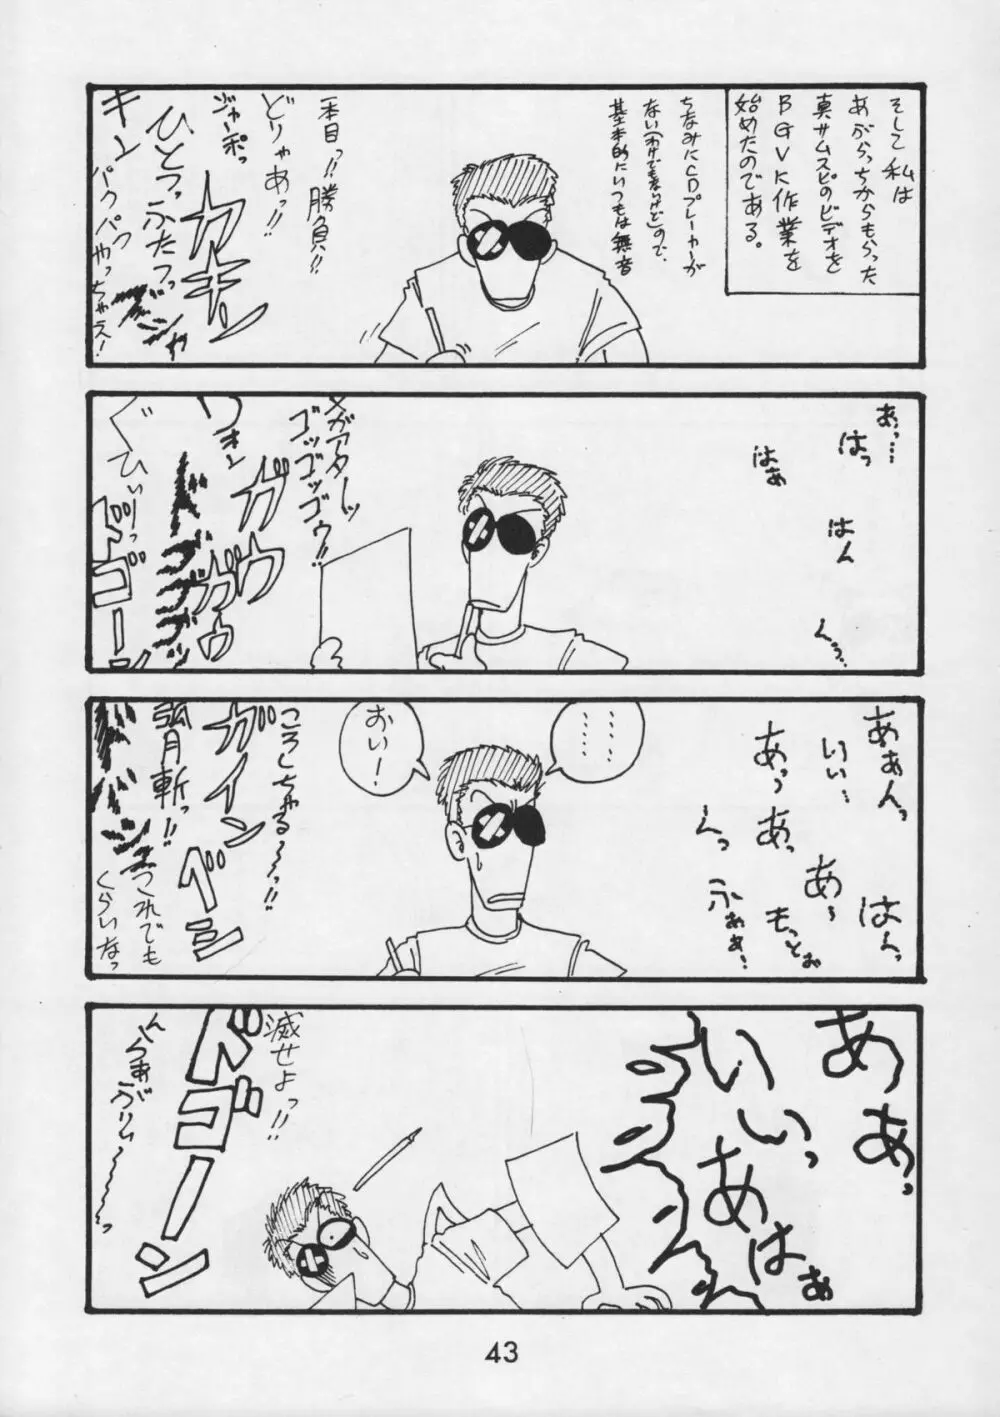 そして私は
あぶらっちからもらった
真サムスピのビデオを
BGVK作業を
始めたのである。
ちなみにCDプレーヤーが
ない(わけでもないけど)ので、
基本的にいつもは無音
一本目っ!!勝負!!
どりゃあっ!!
ジャーポっ
カキン
ひとつっふたつっ
ズシャ
キン
パクパクやっちゃえ!
あっ…
はっ
はん
くぅ…
はぁ
メガアターッ
ゴッゴッゴゥ!!
ガウウ
ガゥ
ウォン
ドゴゴゴッ
ぐひぃ!っ
ドゴーン
ああんっ
はーんっ
いい…
あ~
あっあっ
もっとぉ
んっ
ふぁぁ…
………
おい!
ころしちゃる~っ!!
ガインベシ
弧月斬っ!!
これでも
くらいなっ
ああっ
いいいっ
あはぁ
滅せよっ!!
ドゴーン